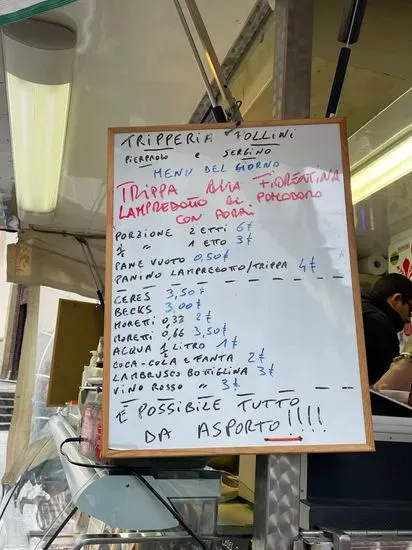 TRIPPERIA FOLLINI
PIERPAOLO e SERGINO
MENU DEL GIORNO
TRIPPA ALLA FIORENTINA
LAMPREDOTTO AL POMODORO
CON PORRI
PORZIONE 2 ETTI 6€
½ " 1 ETTO 3€
PANE VUOTO 0,50€
PANINO LAMPREDOTTO/TRIPPA 4€
CERES 3,50€
BECKS 3,00€
MORETTI 0,33 2€
MORETTI 0,66 3,50€
ACQUA ½ LITRO 1€
COCA-COLA E FANTA 2€
LAMBRUSCO BOTTIGLINA 3€
VINO ROSSO " 3€
E' POSSIBILE TUTTO
DA ASPORTO!!!!